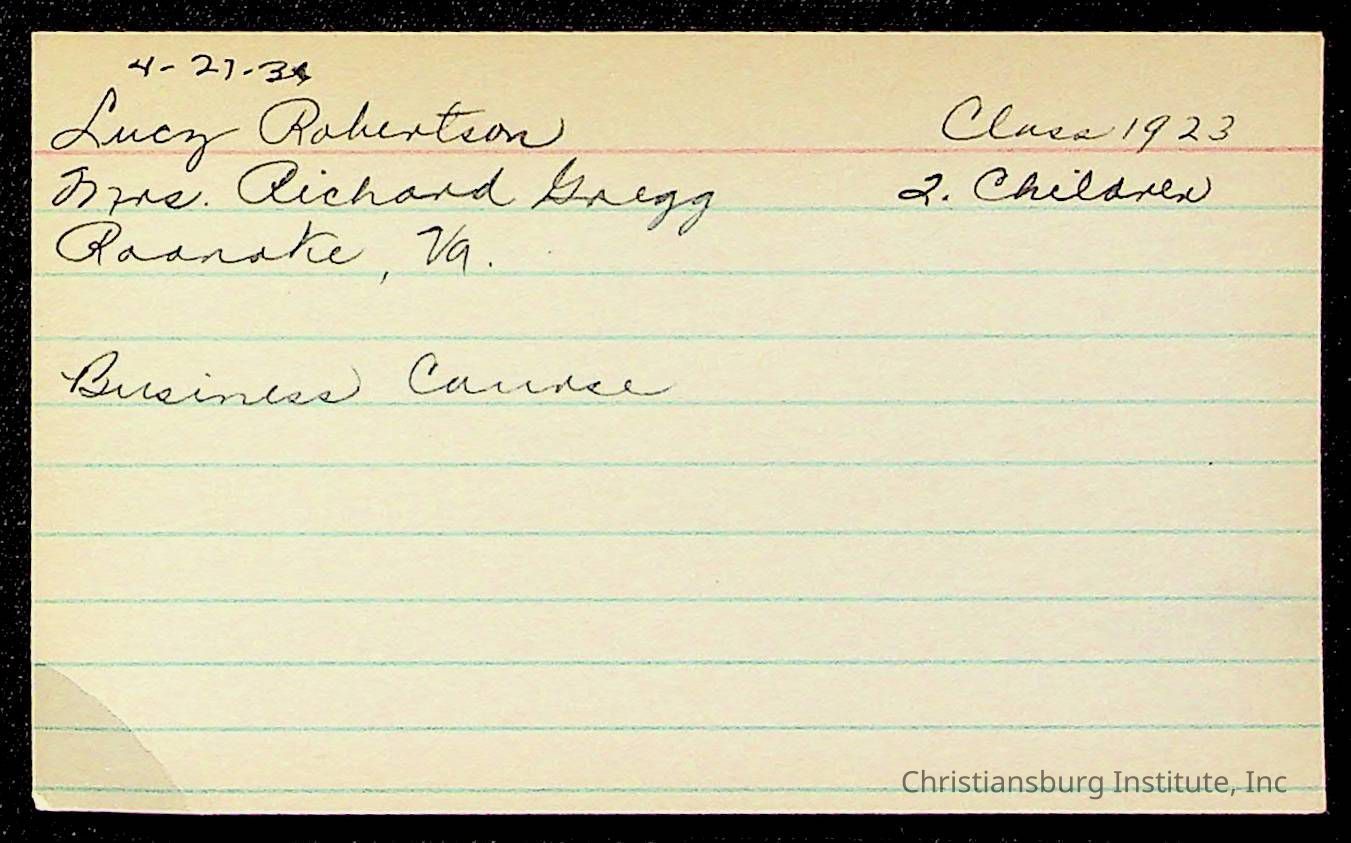 4-27-34
Lucy Robertson Class 1923
Mrs. Richard Gregg 2. Children
Roanoke, Va.
Business Course
Christiansburg Institute, Inc